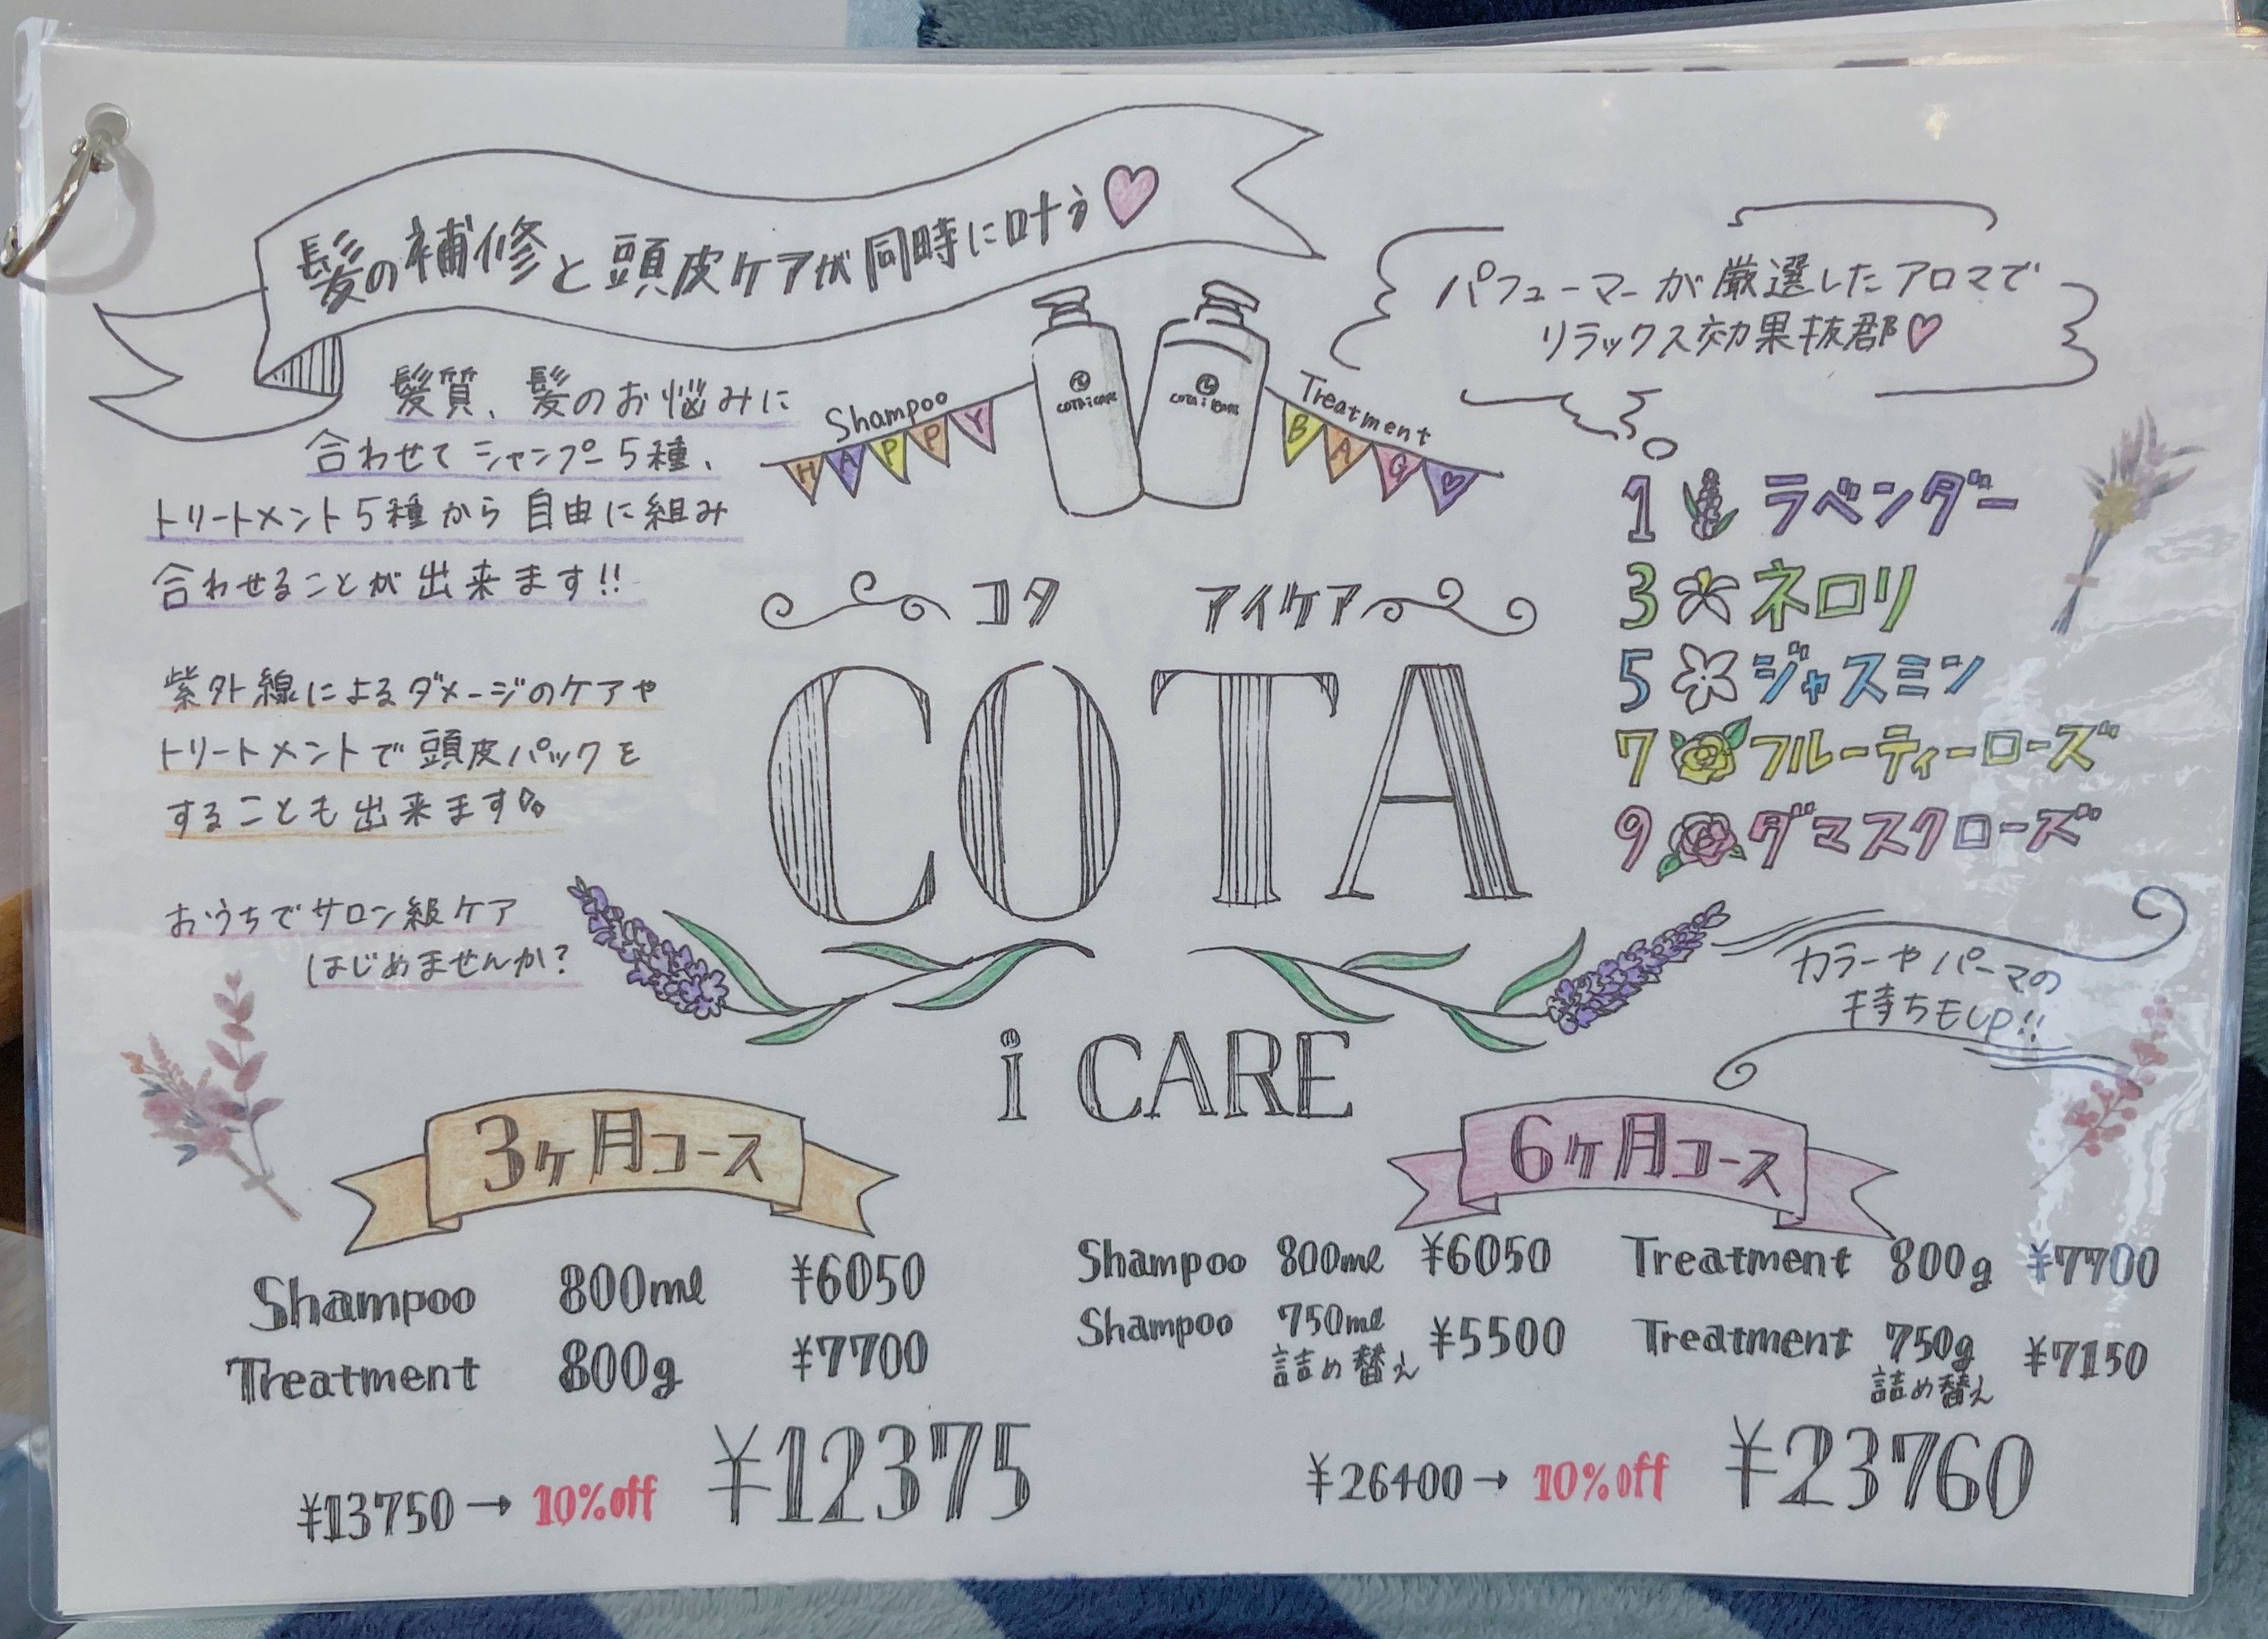 髪の補修と頭皮ケアが同時に叶う♡
パフューマーが厳選したアロマで
リラックス効果抜群♡
髪質、髪のお悩みに
合わせてシャンプー5種、
トリートメント5種から自由に組み
合わせることが出来ます!!
Shampoo
HAPPY
COTA i CARE
COTA i CARE
Treatment
BAG♡
1 ラベンダー
3 ネロリ
5 ジャスミン
7 フルーティーローズ
9 ダマスクローズ
コタ アイケア
COTA
i CARE
紫外線によるダメージのケアや
トリートメントで頭皮パックを
することも出来ます
おうちでサロン級ケア
はじめませんか?
カラーやパーマの
持ちもUP!!
3ヶ月コース
Shampoo 800ml ¥6050
Treatment 800g ¥7700
¥13750→10%off ¥12375
6ヶ月コース
Shampoo 800ml ¥6050 Treatment 800g ¥7700
Shampoo 750ml ¥5500 Treatment 750g ¥7150
詰め替え 詰め替え
¥26400→10%off ¥23760